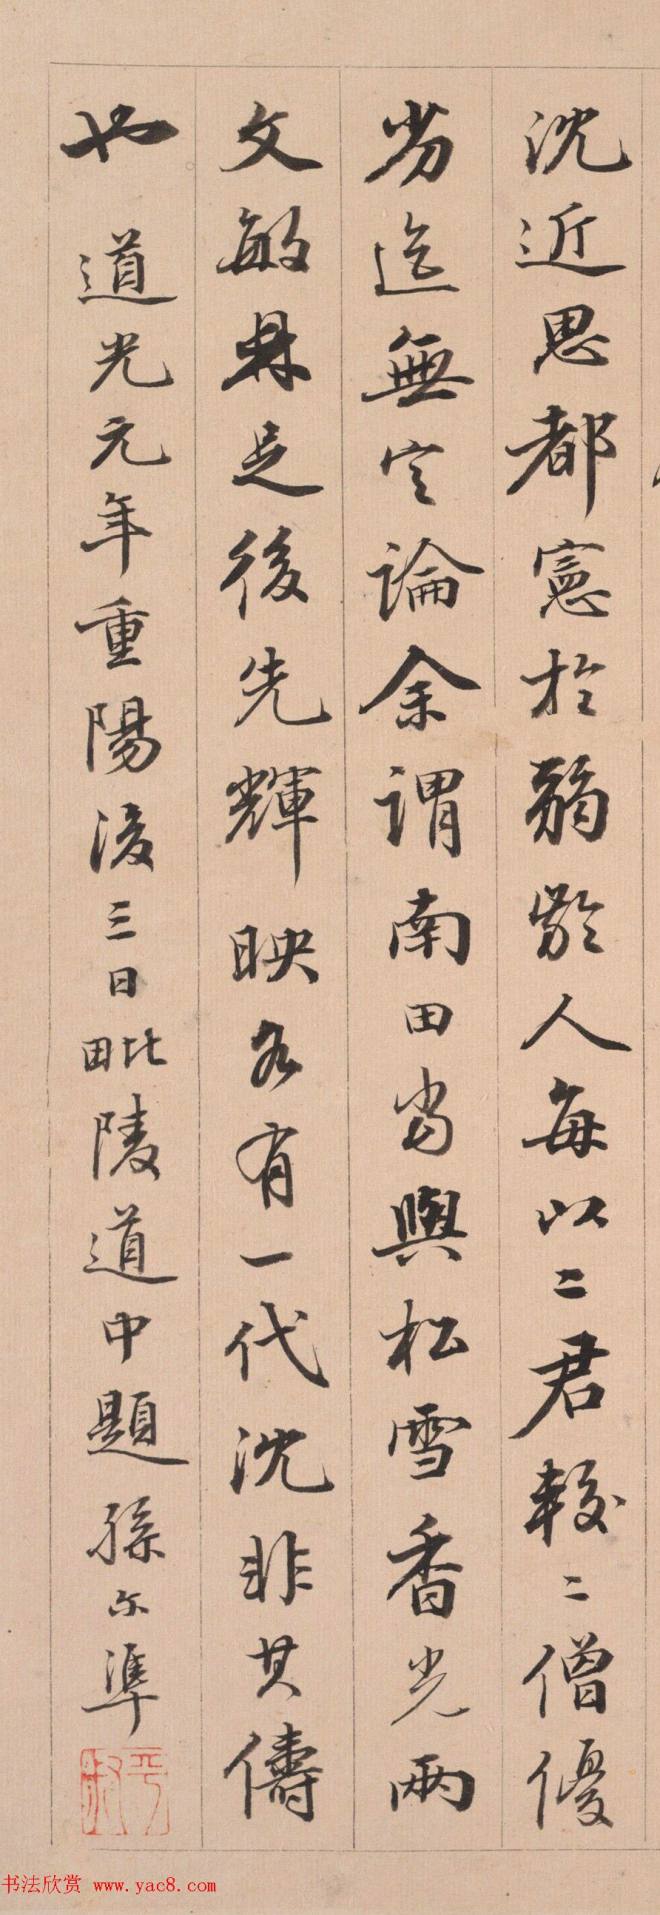 沈近思都憲於弱齡人每以二君較二僧優
劣迄無定論余謂南田当與松雪香光兩
文敏鼎足後先輝映各有一代沈非其儔
也 道光元年重陽後三日毗陵道中題孫尔準
平叔
书法欣赏 www.yac8.com